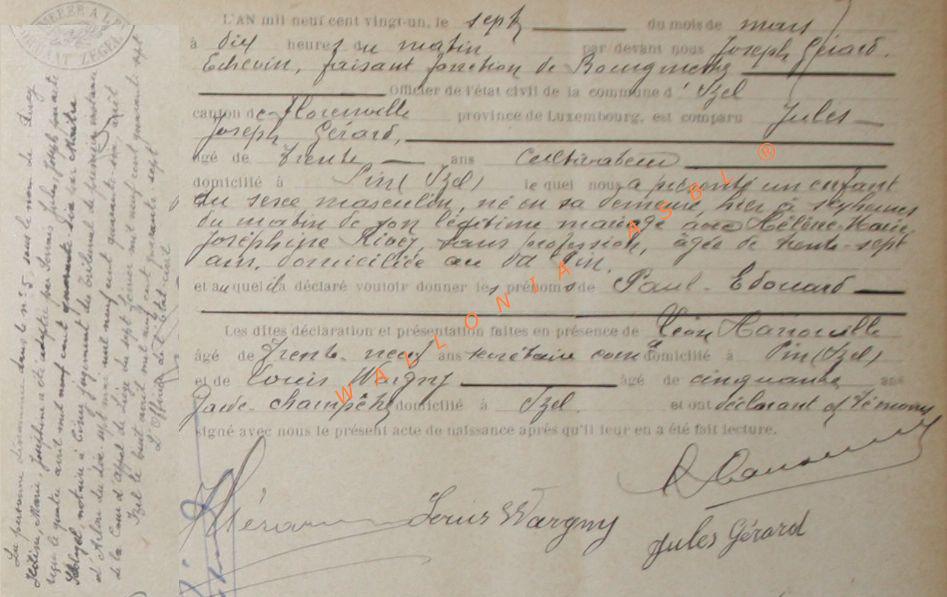 L'AN mil neuf cent vingt-un, le sept du mois de mars
à dix heures du matin par devant nous Joseph Gérard
Echevin, faisant fonction de Bourgmestre
Officier de l'état civil de la commune d' Izel
canton de Florenville province de Luxembourg, est comparu Jules
Joseph Gérard,
âgé de Trente ans cultivateur
domicilié à Pin (Izel) le quel nous a présenté un enfant
du sexe masculin, né en sa demeure, hier à sept heures
du matin de son légitime mariage avec Hélène Marie
Joséphine sans profession, âgée de trente-sept
ans, domiciliée au dit Pin.
et au quel il a déclaré vouloir donner les prénoms de Paul-Edouard
Les dites déclaration et présentation faites en présence de Léon
âgé de Trente-neuf ans secrétaire com domicilié à Pin (Izel)
et de Louis Wargny âgé de cinquante ans
Garde-champêtre domicilié à Izel et ont déclarant et témoins
signé avec nous le présent acte de naissance après qu'il leur en a été fait lecture.
Louis Wargny
Jules Gérard
La personne dénommée dans le n° 5 sous le nom de
Hélène, Marie, Joséphine a été adoptée par
reçu le quatre avril mil neuf cent quarante six par Maître
notaire à jugement du tribunal de première instance
d'Arlon du dix-sept mai mil neuf cent quarante-six, arrêt
de la Cour d'appel de Liège du sept février mil neuf cent quarante sept
Izel le huit avril mil neuf cent quarante sept
L'Officier de l'Etat civil
WALLONIA ASBL ®